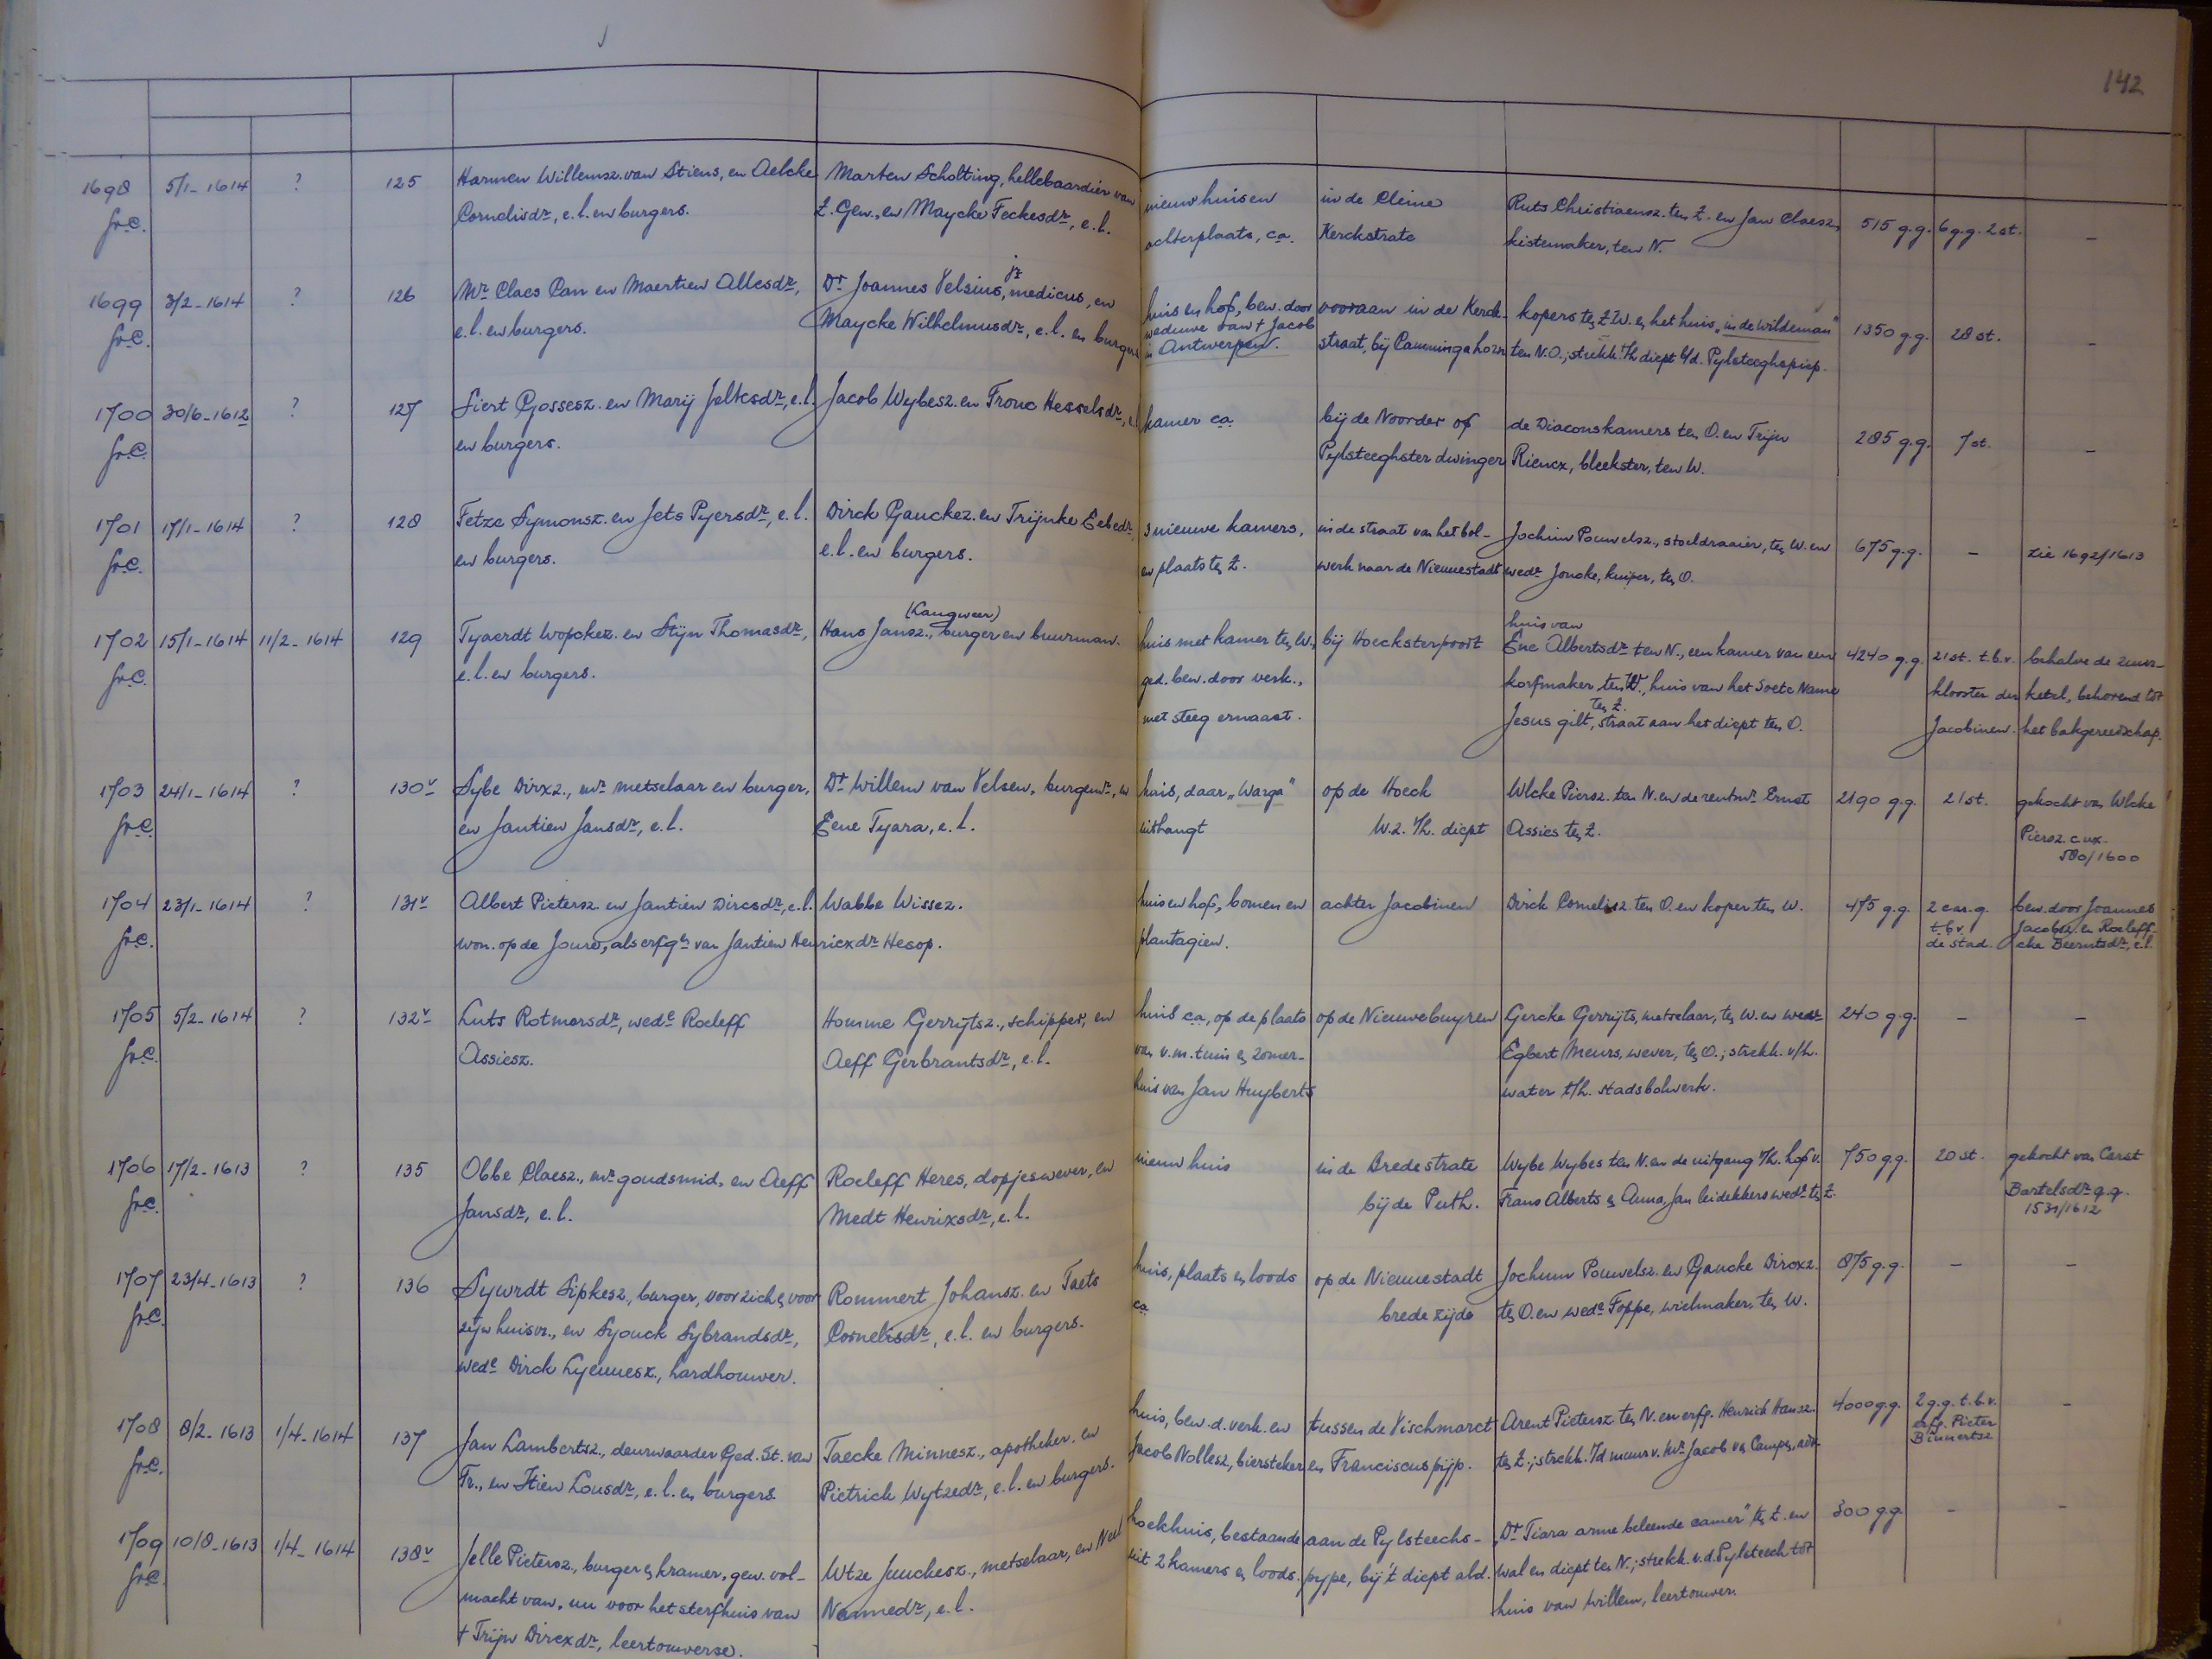 142
1698 5/1-1614 ? 125 Harmen Willemsz. van Stiens, en Aelcke Marten Scholting, hellebaardier van nieuw huis en in de Cleine Ruts Christiaensz. ten Z. en Jan Claesz, 515 g.g. 6 g.g. 2 st. -
fo.C. Cornelisdr, e.l. en burgers. Z. Gen., en Maycke Feckesdr, e.l. achterplaats, c.a. Kerckstrate kistemaker, ten N.
1699 3/2-1614 ? 126 Mr Claes Pan en Maertien Allesdr, Dr Joannes Velsius, jr medicus, en huis en hof, bew. door vooraan in de Kerck- kopers ten Z.W. en het huis "in de Wildeman" 1350 g.g. 28 st. -
fo.C. e.l. en burgers. Maycke Wilhelmusdr, e.l. en burgers weduwe van + Jacob straat, bij Cammingahorn ten N.O.; strekk. t/h diept b/d. Pylsteeghspijp.
in Antwerpen.
1700 30/6-1612 ? 127 Siert Gossesz. en Marij Jeltesdr, e.l. Jacob Wybesz. en Frouc Hesselsdr, e.l. kamer c.a. bij de Noorder of de Diaconskamers ten O. en Trijn 285 g.g. 7 st. -
fo.C. en burgers. Pylsteeghster dwinger Riencx, bleekster, ten W.
1701 17/1-1614 ? 128 Fetze Symonsz. en Jets Pyersdr, e.l. Dirck Gauckez. en Trijnke Eebedr, 3 nieuwe kamers, in de straat van het bol- Jochim Pouwelsz., stoeldraaier, ten W. en 675 g.g. - zie 1692/1613
fo.C. en burgers. e.l. en burgers. en plaats ten Z. werk naar de Nieuwestadt wedr Joucke, kuiper, ten O.
1702 15/1-1614 11/2-1614 129 Tyaerdt Wopckez. en Stijn Thomasdr, Hans Jansz., (Kangweer) burger en buurman. huis met kamer ten W., bij Hoecksterpoort huis van Ene Albertsdr ten N., een kamer van een 4240 g.g. 21 st. t.b.v. behalve de zeuw-
fo.C. e.l. en burgers. ged. bew. door verk., korfmaker ten W., huis van het Soete Name klooster der ketel, behorend tot
met steeg ernaast. Jesus gilt, ten Z. straat aan het diept ten O. Jacobinen. het bakgereedschap.
1703 24/1-1614 ? 130v Sybe Dirxz., mr metselaar en burger, Dr Willem van Velsen, burgemr, en huis, daar "Warga" op de Hoeck Wlcke Piersz. ten N. en de rentmr Ernst 2190 g.g. 21 st. gekocht van Wlcke
fo.C. en Jantien Jansdr, e.l. Eene Tyara, e.l. uithangt W.z. t/h. diept Assies ten Z. Piersz. c.ux.
580/1600
1704 23/1-1614 ? 131v Albert Pietersz. en Jantien Dircsdr, e.l. Wabbe Wissez. huis en hof, bomen en achter Jacobinen Dirck Cornelisz. ten O. en koper ten W. 475 g.g. 2 car.g. bew. door Joannes
fo.C. won. op de Joure, als erfgen van Jantien Henricxdr Hesop. plantagien. t.b.v. Jacobsz. en Roeleff-
de stad. cke Beerntsdr, e.l.
1705 5/2-1614 ? 132v Luts Rotmersdr, wede Roeleff Homme Gerrijtsz., schipper, en huis c.a., op de plaats op de Nieuwebuyren Gercke Gerrijts, metselaar, ten W. en wedr 240 g.g. - -
fo.C. Assiesz. Aeff Gerbrantsdr, e.l. van v.m. tuin en zomer- Egbert Meurs, wever, ten O.; strekk. v/h.
huis van Jan Huyberts water t/h. stadsbolwerk.
1706 17/2-1613 ? 135 Obbe Claesz., mr goudsmid, en Aeff Roeleff Heres, dopjeswever, en nieuw huis in de Bredestrate Wybe Wybes ten N. en de uitgang t/h. hof v. 750 g.g. 20 st. gekocht van Carst
fo.C. Jansdr, e.l. Medt Henrixsdr, e.l. bij de Puth. Frans Alberts en Anna, Jan leidekkers wede ten Z. Bartelsdr q.q.
1531/1612
1707 23/4-1613 ? 136 Sywrdt Sipkesz., burger, voor zich en voor Rommert Johansz. en Taets huis, plaats en loods op de Nieuwestadt Jochum Pouwelsz. en Gaucke Dircxz. 875 g.g. - -
fo.C. zijn huisvr., en Syouck Sybrandsdr, Cornelisdr, e.l. en burgers. c.a. brede zijde ten O. en wede Foppe, wielmaker, ten W.
wede Dirck Lyeuwesz., hardhouwer.
1708 8/2-1613 1/4-1614 137 Jan Lambertsz., deurwaarder Ged. St. van Taecke Minnesz., apotheker, en huis, bew. d. verk. en tussen de Vischmarct Arent Pietersz. ten N. en erfg. Henrick Hansz. 4000 g.g. 2 g.g. t.b.v. -
fo.C. Fr., en Itien Lousdr, e.l. en burgers. Pietrick Wytzedr, e.l. en burgers. Jacob Nollesz, biersteker en Franciscuspijp. ten Z.; strekk. t/d muur v. Mr Jacob van Campen, adv. erfg. Pieter
Binnertsz
1709 10/8-1613 1/4-1614 138v Jelle Pietersz., burger en kramer, gew. vol- Wtze Juuckesz., metselaar, en Neel hoekhuis, bestaande aan de Pylsteechs- "Dr Tiara arme beleende camer" ten Z. en 300 g.g. - -
fo.C. macht van, nu voor het sterfhuis van Nannedr, e.l. uit 2 kamers en loods. pype, bij 't diept ald. wal en diept ten N.; strekk. v.d. Pylsteech tot
+ Trijn Dircxdr, leertouwerse. huis van Willem, leertouwer.